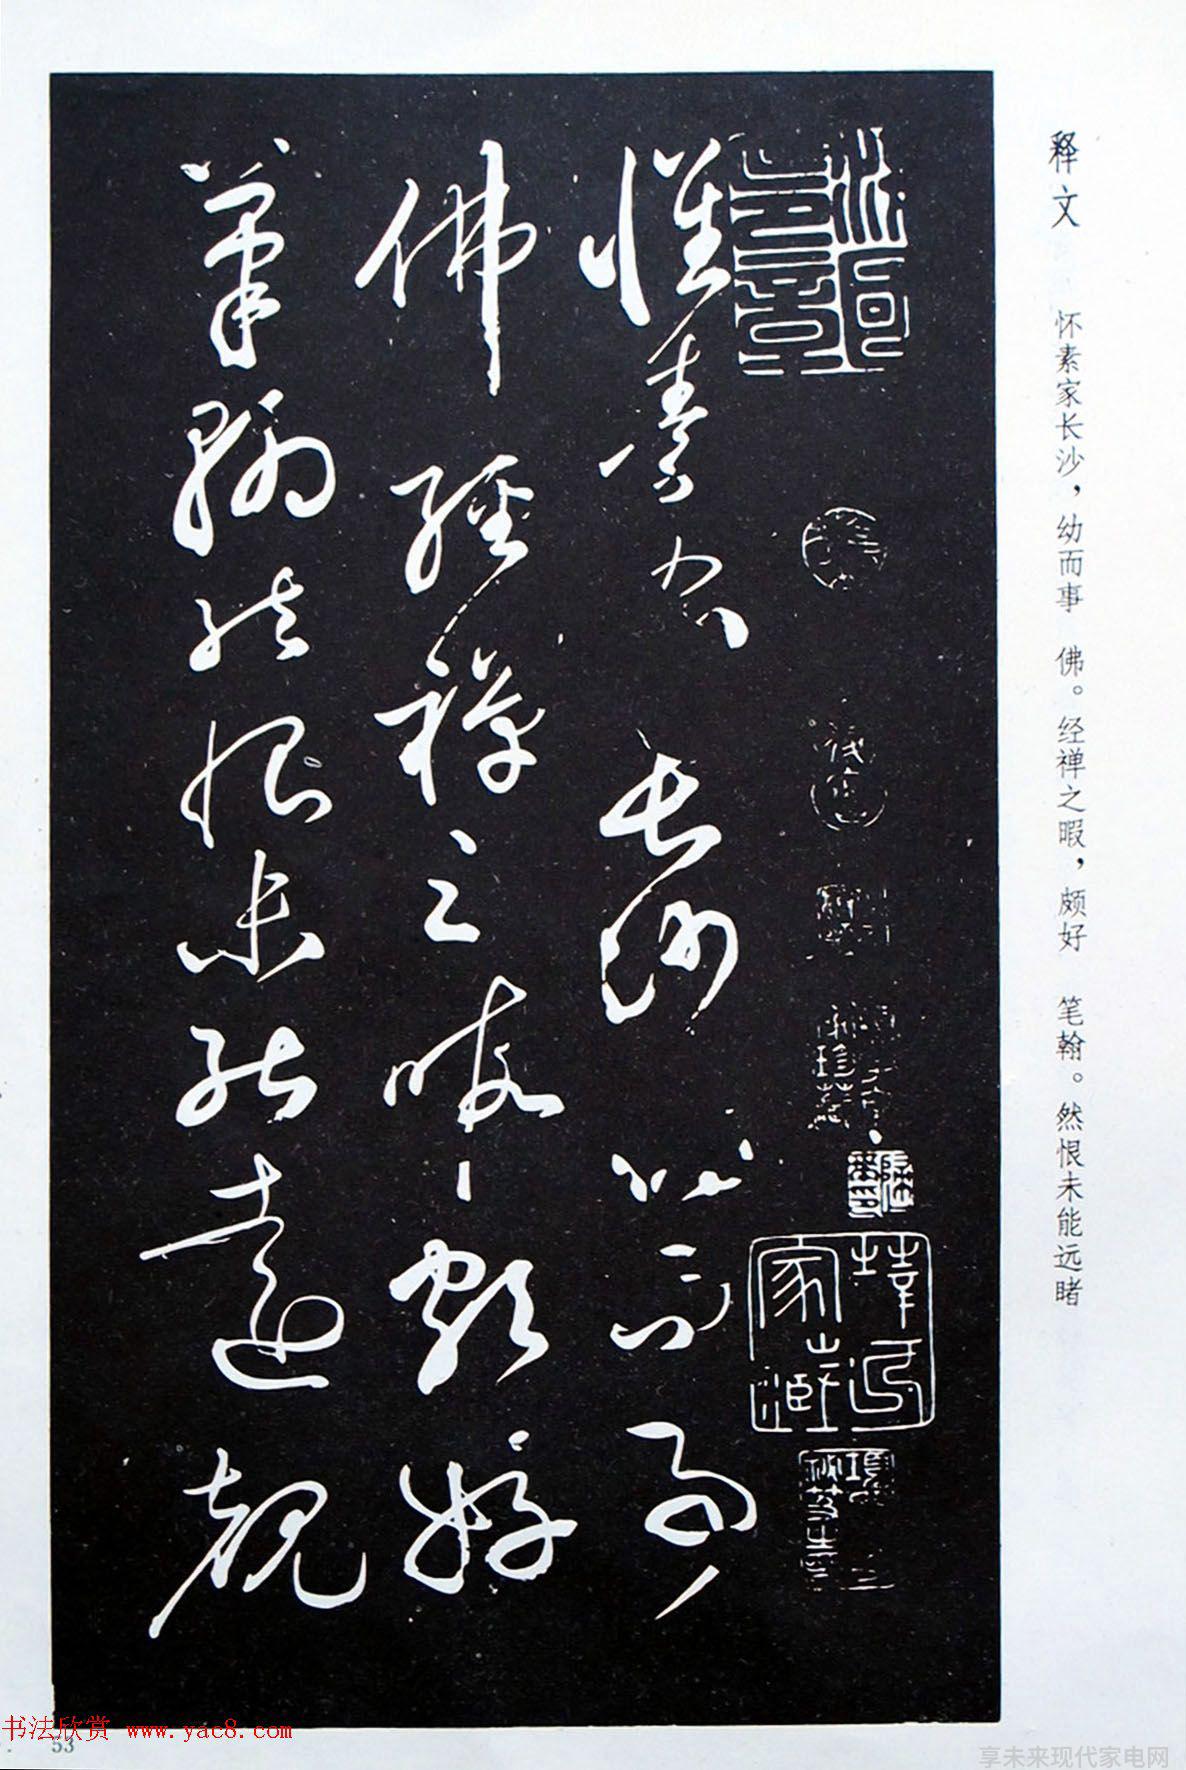 释文 怀素家长沙，幼而事 佛。经禅之暇，颇好 笔翰。然恨未能远睹
懷素家長沙幼而事
佛經禪之暇頗好
筆翰然恨未能遠覩
书法欣赏 www.yac8.com
53
享未来现代家电网